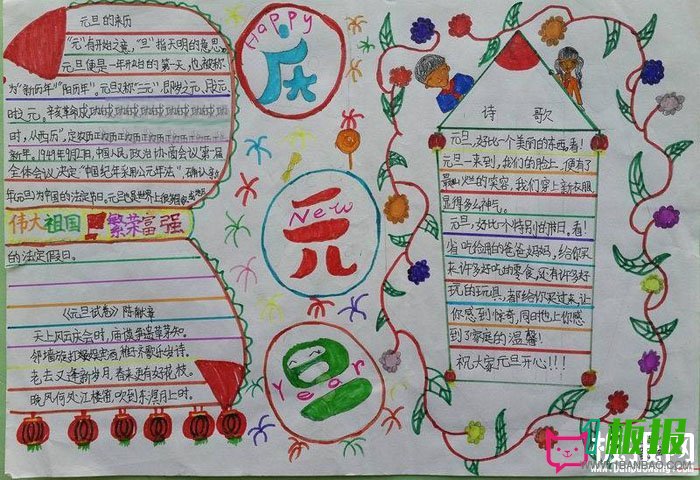 元旦的来历
"元"有开始之意,"旦"指天明的意思
元旦便是一年开始的第一天,也被称
为"新历年""阳历年"。元旦又称"三元",即岁之元、月之元、
时之元,辛亥革命成功
时,从西历",定农历正
新年。1949年9月27日,中国人民政治协商会议第一届
全体会议决定"中国纪年采用公元年法",确认新
年元旦为中国的法定节日。元旦也是世界上很多国家或地区
伟大祖国 繁荣富强
的法定假日。
《元旦试卷》陈献章
天上风云庆会时,庙谟争遗草茅知。
邻墙旋打娱宾酒,稚子齐歌乐岁诗。
老去又逢新岁月,春来更有好花枝。
晚风何处江楼笛,吹到东溟月上时。
Happy
庆
New
元
Year
旦
诗歌
元旦,好比一个美丽的东西,看!
元旦一来到,我们的脸上,便有了
最灿烂的笑容,我们穿上新衣服
是得多么神气。
元旦,好比一个特别的节日。看!
省吃俭用的爸爸妈妈,给你买
来许多好吃的零食,还有许多好
玩的玩具,都给你买过来,让
你感到惊奇,同时也上你感
到了家庭的温馨!
祝大家元旦开心!!!
板报
WWW.1BANBAO.COM